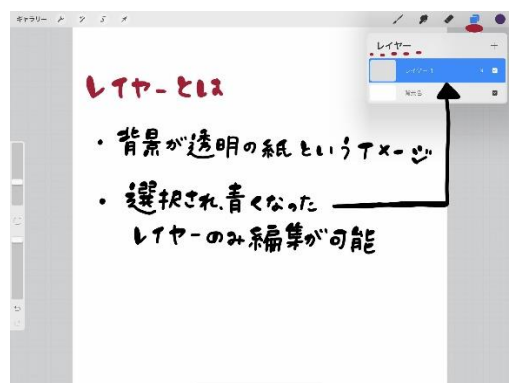 ギャラリー
レイヤー
レイヤー 1
N
背景色
レイヤーとは
・背景が透明の紙というイメージ
・選択され、青くなった
レイヤーのみ編集が可能